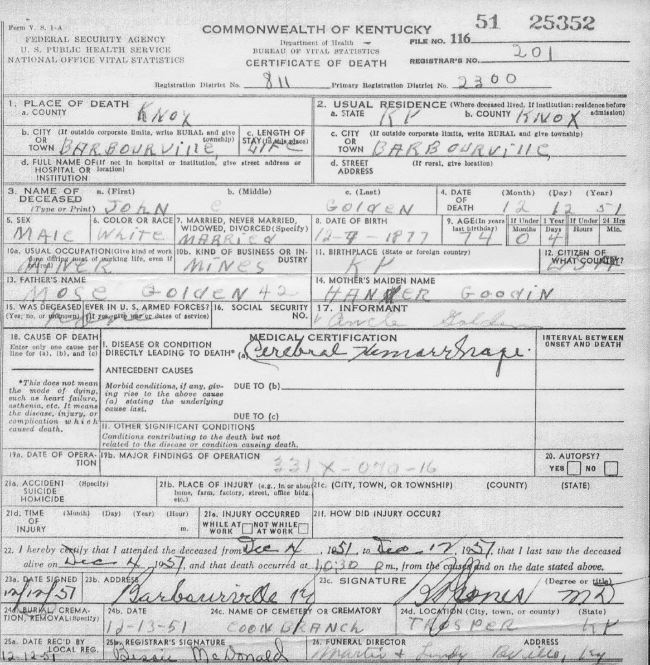 Form V. S. 1-A
FEDERAL SECURITY AGENCY
U. S. PUBLIC HEALTH SERVICE
NATIONAL OFFICE VITAL STATISTICS
COMMONWEALTH OF KENTUCKY
Department of Health
BUREAU OF VITAL STATISTICS
CERTIFICATE OF DEATH
51 25352
FILE NO. 116
REGISTRAR'S NO. 201
Registration District No. 811 Primary Registration District No. 2300
1. PLACE OF DEATH
a. COUNTY KNOX
2. USUAL RESIDENCE (Where deceased lived. If institution: residence before admission)
a. STATE KY b. COUNTY KNOX
b. CITY (If outside corporate limits, write RURAL and give township)
OR
TOWN BARBOURVILLE
c. LENGTH OF STAY (in this place) LIFE
c. CITY (If outside corporate limits, write RURAL and give township)
OR
TOWN BARBOURVILLE
d. FULL NAME OF (If not in hospital or institution, give street address or location)
HOSPITAL OR
INSTITUTION
d. STREET (If rural, give location)
ADDRESS
3. NAME OF DECEASED (Type or Print)
a. (First) JOHN b. (Middle) E c. (Last) GOLDEN
4. DATE OF DEATH (Month) (Day) (Year) 12 12 51
5. SEX MALE
6. COLOR OR RACE WHITE
7. MARRIED, NEVER MARRIED, WIDOWED, DIVORCED (Specify) MARRIED
8. DATE OF BIRTH 12-7-1877
9. AGE (In years last birthday) 74 If Under 1 Year Months 0 Days 4 If Under 24 Hrs Hours Min.
10a. USUAL OCCUPATION (Give kind of work done during most of working life, even if retired) MINER
10b. KIND OF BUSINESS OR INDUSTRY MINES
11. BIRTHPLACE (State or foreign country) KY
12. CITIZEN OF WHAT COUNTRY?
13. FATHER'S NAME
MOSE GOLDEN 42
14. MOTHER'S MAIDEN NAME
GOODIN
15. WAS DECEASED EVER IN U. S. ARMED FORCES?
(Yes, no, or unknown) (If yes, give war or dates of service)
16. SOCIAL SECURITY NO.
17. INFORMANT
18. CAUSE OF DEATH
Enter only one cause per line for (a), (b), and (c)
MEDICAL CERTIFICATION
INTERVAL BETWEEN ONSET AND DEATH
I. DISEASE OR CONDITION
DIRECTLY LEADING TO DEATH* (a) Cerebral Hemorrhage
*This does not mean the mode of dying, such as heart failure, asthenia, etc. It means the disease, injury, or complication which caused death.
ANTECEDENT CAUSES
Morbid conditions, if any, giving rise to the above cause (a) stating the underlying cause last.
DUE TO (b)
DUE TO (c)
II. OTHER SIGNIFICANT CONDITIONS
Conditions contributing to the death but not related to the disease or condition causing death.
19a. DATE OF OPERATION
19b. MAJOR FINDINGS OF OPERATION
331 X-070-16
20. AUTOPSY?
YES NO
21a. ACCIDENT (Specify)
SUICIDE
HOMICIDE
21b. PLACE OF INJURY (e.g., in or about home, farm, factory, street, office bldg. etc.)
21c. (CITY, TOWN, OR TOWNSHIP) (COUNTY) (STATE)
21d. TIME OF INJURY (Month) (Day) (Year) (Hour) m.
21e. INJURY OCCURRED
WHILE AT WORK NOT WHILE AT WORK
21f. HOW DID INJURY OCCUR?
22. I hereby certify that I attended the deceased from Dec 4, 1951, to Dec 12, 1951, that I last saw the deceased
alive on Dec 4, 1951, and that death occurred at 10:30 P m., from the causes and on the date stated above.
23a. DATE SIGNED
12/12/51
23b. ADDRESS
Barbourville Ky
23c. SIGNATURE (Degree or title)
MD
24a. BURIAL, CREMATION, REMOVAL (Specify)
24b. DATE
12-13-51
24c. NAME OF CEMETERY OR CREMATORY
COON BRANCH
24d. LOCATION (City, town, or county) (State)
TROSPER KY
25a. DATE REC'D BY LOCAL REG.
12-12-51
25b. REGISTRAR'S SIGNATURE
Bessie McDonald
26. FUNERAL DIRECTOR ADDRESS
Ky